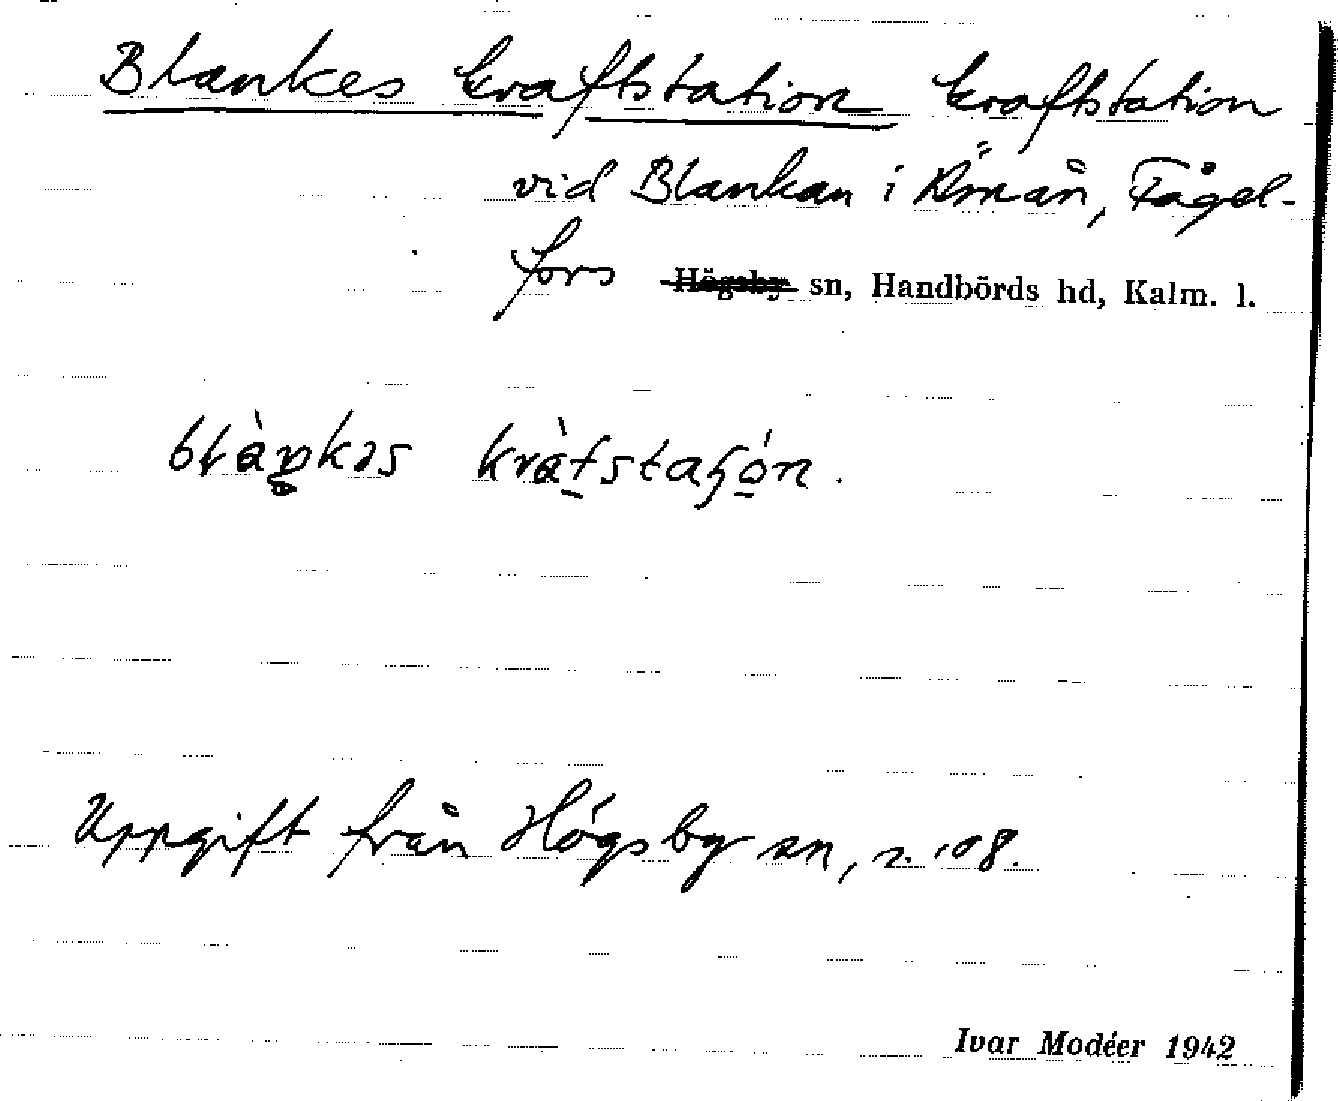 Blankes kraftstation kraftstation
vid Blankan i Åmån, Fågel-
fors Högsby sn, Handbörds hd, Kalm. l.
blàŋkəs kràfstaʃón.
Uppgift från Högsby sn, r. 108.
Ivar Modéer 1942